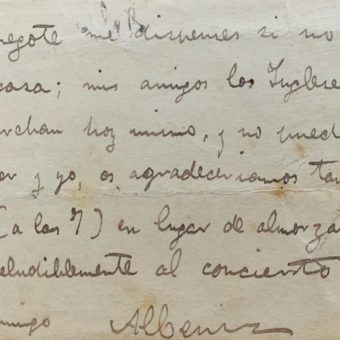 negote me dispenses si no
casa; mis amigos los Ingles
rchan hoy mismo, y no pued
er y yo, os agradeceriamos tan
(a las 7) en lugar de almorza
eludiblemente al concierto
amigo Albeniz